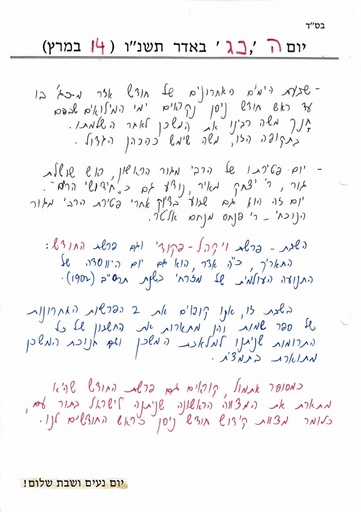 בס״ד
יום ה׳, כג׳ באדר תשנ״ו (14 במרץ)
- שבעת הימים האחרונים של חודש אדר מ-כג׳ בו
עד ראש חודש ניסן נקראים ימי המילואים שבהם
חנך משה רבינו את המשכן לאחר השלמתו.
בתקופה הזו, משה שימש ככהן הגדול.
- יום פטירתו של הרבי מגור הראשון, ראש שושלת
גור, ר׳ יצחק מאיר, נודע גם כ"חידושי הרים".
יום זה הוא גם שבוע בדיוק אחרי פטירת הרבי מגור
הנוכחי - ר׳ פנחס מנחם אלטר.
השבת - פרשת ויקהל-פקודי וגם פרשת החודש:
התאריך, כ״ה אדר, הוא גם יום היווסדה של
התנועה העולמית של מזרחי בשנת תרס״ב (1902).
בשבת זו, אנו קוראים את 2 הפרשות האחרונות
של ספר שמות והן מתארות את החשבון של כל
התרומות שניתנו למלאכת המשכן וגם חנוכת המשכן
מתוארת בתמצית.
כמסופר אתמול, קוראים גם פרשת החודש שהיא
מתארת את המצווה הראשונה שניתנה לישראל בתור עם,
כלומר מצוות קידוש חודש ניסן כראש החודשים לנו.
יום נעים ושבת שלום!